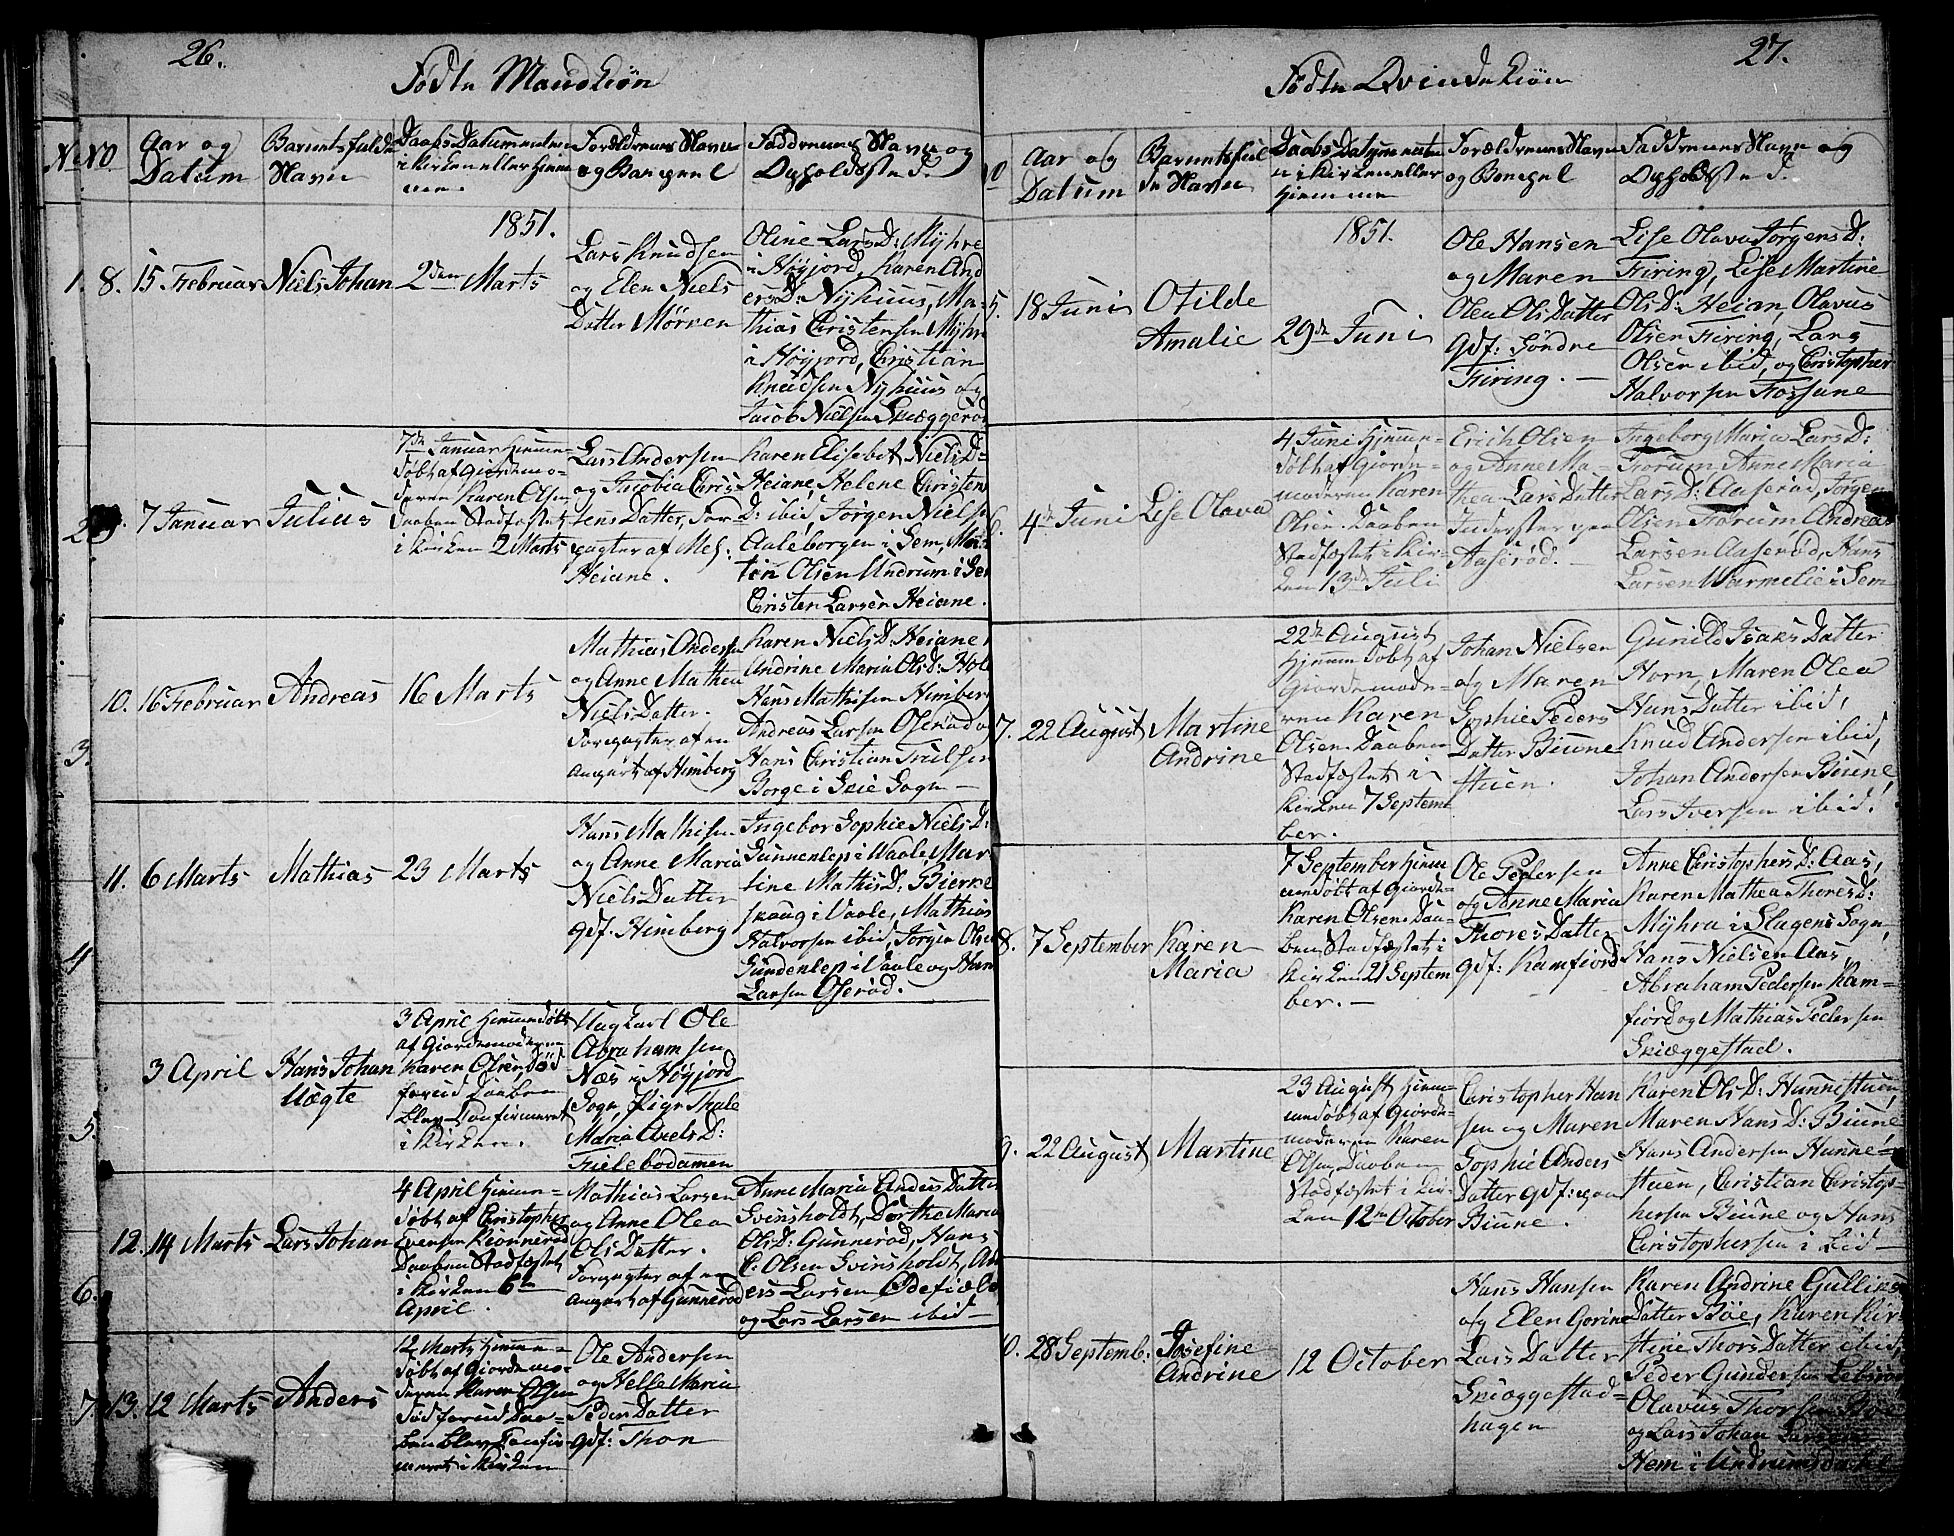 26.
Födte Mandkiön
No
Aar og
Datum
Barnets fulde
Navn
Daabs Datum enten
i Kirken eller Hiem-
me.
Forældrenes Navn
og Borgerl
Faddrenes Navn og
Opholdssted.
1851.
8.
15 Februar
Niels Johan
2den Marts
Lars Knudsen
og Elen Niels
Datter Mörken
Oline Lars D: Myhre
i Höyjord, Karen And
ers D: Nyhuus, Ma-
thias Christensen Myhre
i Höyjord, Christian
Knudsen Nyhuus og
Jacob Nielsen Skiæggeröd
7 Januar
Julius
7de Januar Hiemme-
döbt af Giordemo-
deren Karen Olsen
Daaben Stadfæstet
i Kirken 2 Marts
Lars Andersen
og Jacobia Chris
tens Datter, For-
pagter af
Heiane.
Karen Elisabet Niels D-
Heiane, Helene Christens
D: ibid, Jörgen Nielsen
Aaleborgen i Sem, Mar
tin Olsen Undrum i Sem
Christen Larsen Heiane.
10.
16 Februar
Andreas
16 Marts
Mathias Andersen
og Anne Mathea
Niels Datter.
Forpagter af en
Anpart af Himberg
Karen Niels D: Heiane,
Andrine Maria Ols D:
Hans Mathisen Himberg
Andreas Larsen Oseröd og
Hans Christian Trulsen
Borge i Skie Sogn -
11.
6 Marts
Mathias
23 Marts
Hans Mathisen
og Anne Maria
Niels Datter
gdf. Himberg
Ingebor Sophie Niels D:
Gunnenlep i Vaale, Mar
tine Mathis D: Bierke
skoug i Vaale, Mathias
Halvorsen ibid, Jörgen Olsen
Gundenlep i Vaale og Hans
Larsen Oseröd.
3 April
Hans Johan
Uægte
3 April Hiemmedöbt
af Giordemoderen
Karen Olsen, död
forend Daaben
blev Confirmeret
i Kirken.
Ung Karl Ole
Abrahamsen
Næs i Höyjord
Sogn, Pige
Maria Axels D:
12.
14 Marts
Lars Johan
4 April Hiemme-
döbt af Christopher
Evensen Kionneröd
Daaben Stadfæstet
i Kirken 6te
April
Mathias Larsen
og Anne Olea
Ols Datter.
Forpagter af en
Anpart af Gunneröd
Anne Maria Anders Datter
Svinsholdt, Dorthe Maria
Ols D: Gunneröd, Hans
C. Olsen Svinsholdt, An
ers Larsen Ödefield
og Lars Larsen ibid -
13.
12 Marts
Anders
12 Marts Hiemme-
döbt af Giordemo-
deren Karen Olsen
död forend Daa-
ben blev Confir-
meret i Kirken
Ole Andersen
og Helle Maria
Peders Datter
gdf: Thon
27.
Födte Qvindekiön
Aar og
Datum
Barnets ful
de Navn
Daabs Datum enten
i Kirken eller
Hiemme
Forældrenes Navn
og Borgerl
Faddrenes Navn og
Opholdssted.
1851.
5.
18 Juni
Otilde
Amalie
29de Juni
Ole Hansen
og Maren
Olea Ols Datter
gdf: Söndre
Firing. -
Lise Olava Jörgens D:
Firing, Lise Martine
Ols D: Heian, Olavus
Olsen Firing, Lars
Olsen ibid, og Christopher
Halvorsen Fossane
6.
4de Juni
Lise Olava
4 Juni Hiemme-
döbt af Giorde-
moderen Karen
Olsen. Daaben
Stadfæstet i Kir-
ken 13de Juli
Erich Olsen
og Anne Ma-
thea Lars Datter
Inderster paa
Aaseröd. -
Ingeborg Maria Lars D:
Frorum, Anne Maria
Lars D: Aaseröd, Jörgen
Olsen Frorum, Andreas
Larsen Aaseröd, Hans
Larsen Warmelie i Sem
7.
22 August
Martine
Andrine
22de August
Hjemmedöbt af
Giordemode-
ren Karen
Olsen. Daaben
Stadfæstet i
Kirken 7 Septem
ber.
Johan Nielsen
og Maren
Sophie Peders
Datter Biune
stuen.
Gunild Isaks Datter
Horn, Maren Olea
Hans Datter ibid,
Knud Andersen ibid,
Johan Andersen Biune
Lars Iversen ibid.
8.
7 September
Karen
Maria
7 September Hiem
medöbt af Giorde-
Karen Olsen. Daa-
ben Stadfæstet i
Kirken 21 Septem
ber. -
Ole Pedersen
og Anne Maria
Thores Datter
gdf: Kamfiord
Anne Christophers D: Aas,
Karen Mathea Thores D:
Myhra i Slagens Sogn,
Hans Nielsen Aas,
Abraham Pedersen Kam-
fiord og Mathias Pedersen
Skiæggestad.
9.
22 August
Martine
23 August Hiem
medöbt af Giorde-
moderen Karen
Olsen, Daaben
Stadfæstet i Kir-
ken 12te October
Christopher Han
sen og Maren
Sophie Anders
Datter gdf: paa
Biune.
Karen Ols D: Hunnestuen,
Maren Hans D: Biune
Hans Andersen Hunne-
stuen, Christian Christop-
hersen Biune og Hans
Christophersen ibid -
10.
28 Septemb:
Josefine
Andrine
12 October
Hans Hansen
og Elen Gorine
Lars Datter
Skiæggestad-
hagen
Karen Andrine Gulliks
Datter Böe, Karen Kir
stine Thors Datter ibid,
Peder Gundersen
Olavus Thorsen Böe
og Lars Johan Larsen
Hem i Undrumsdahl